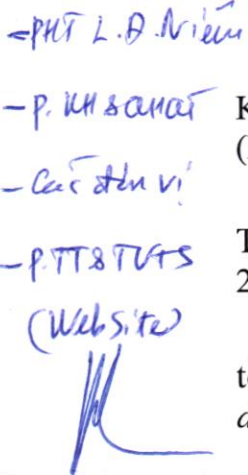 - PHT L.Đ. Niệm
- P. KH&HTQT
- Các đơn vị
- P.TT&TVTS
(Website)
K
(
T
2
t
a